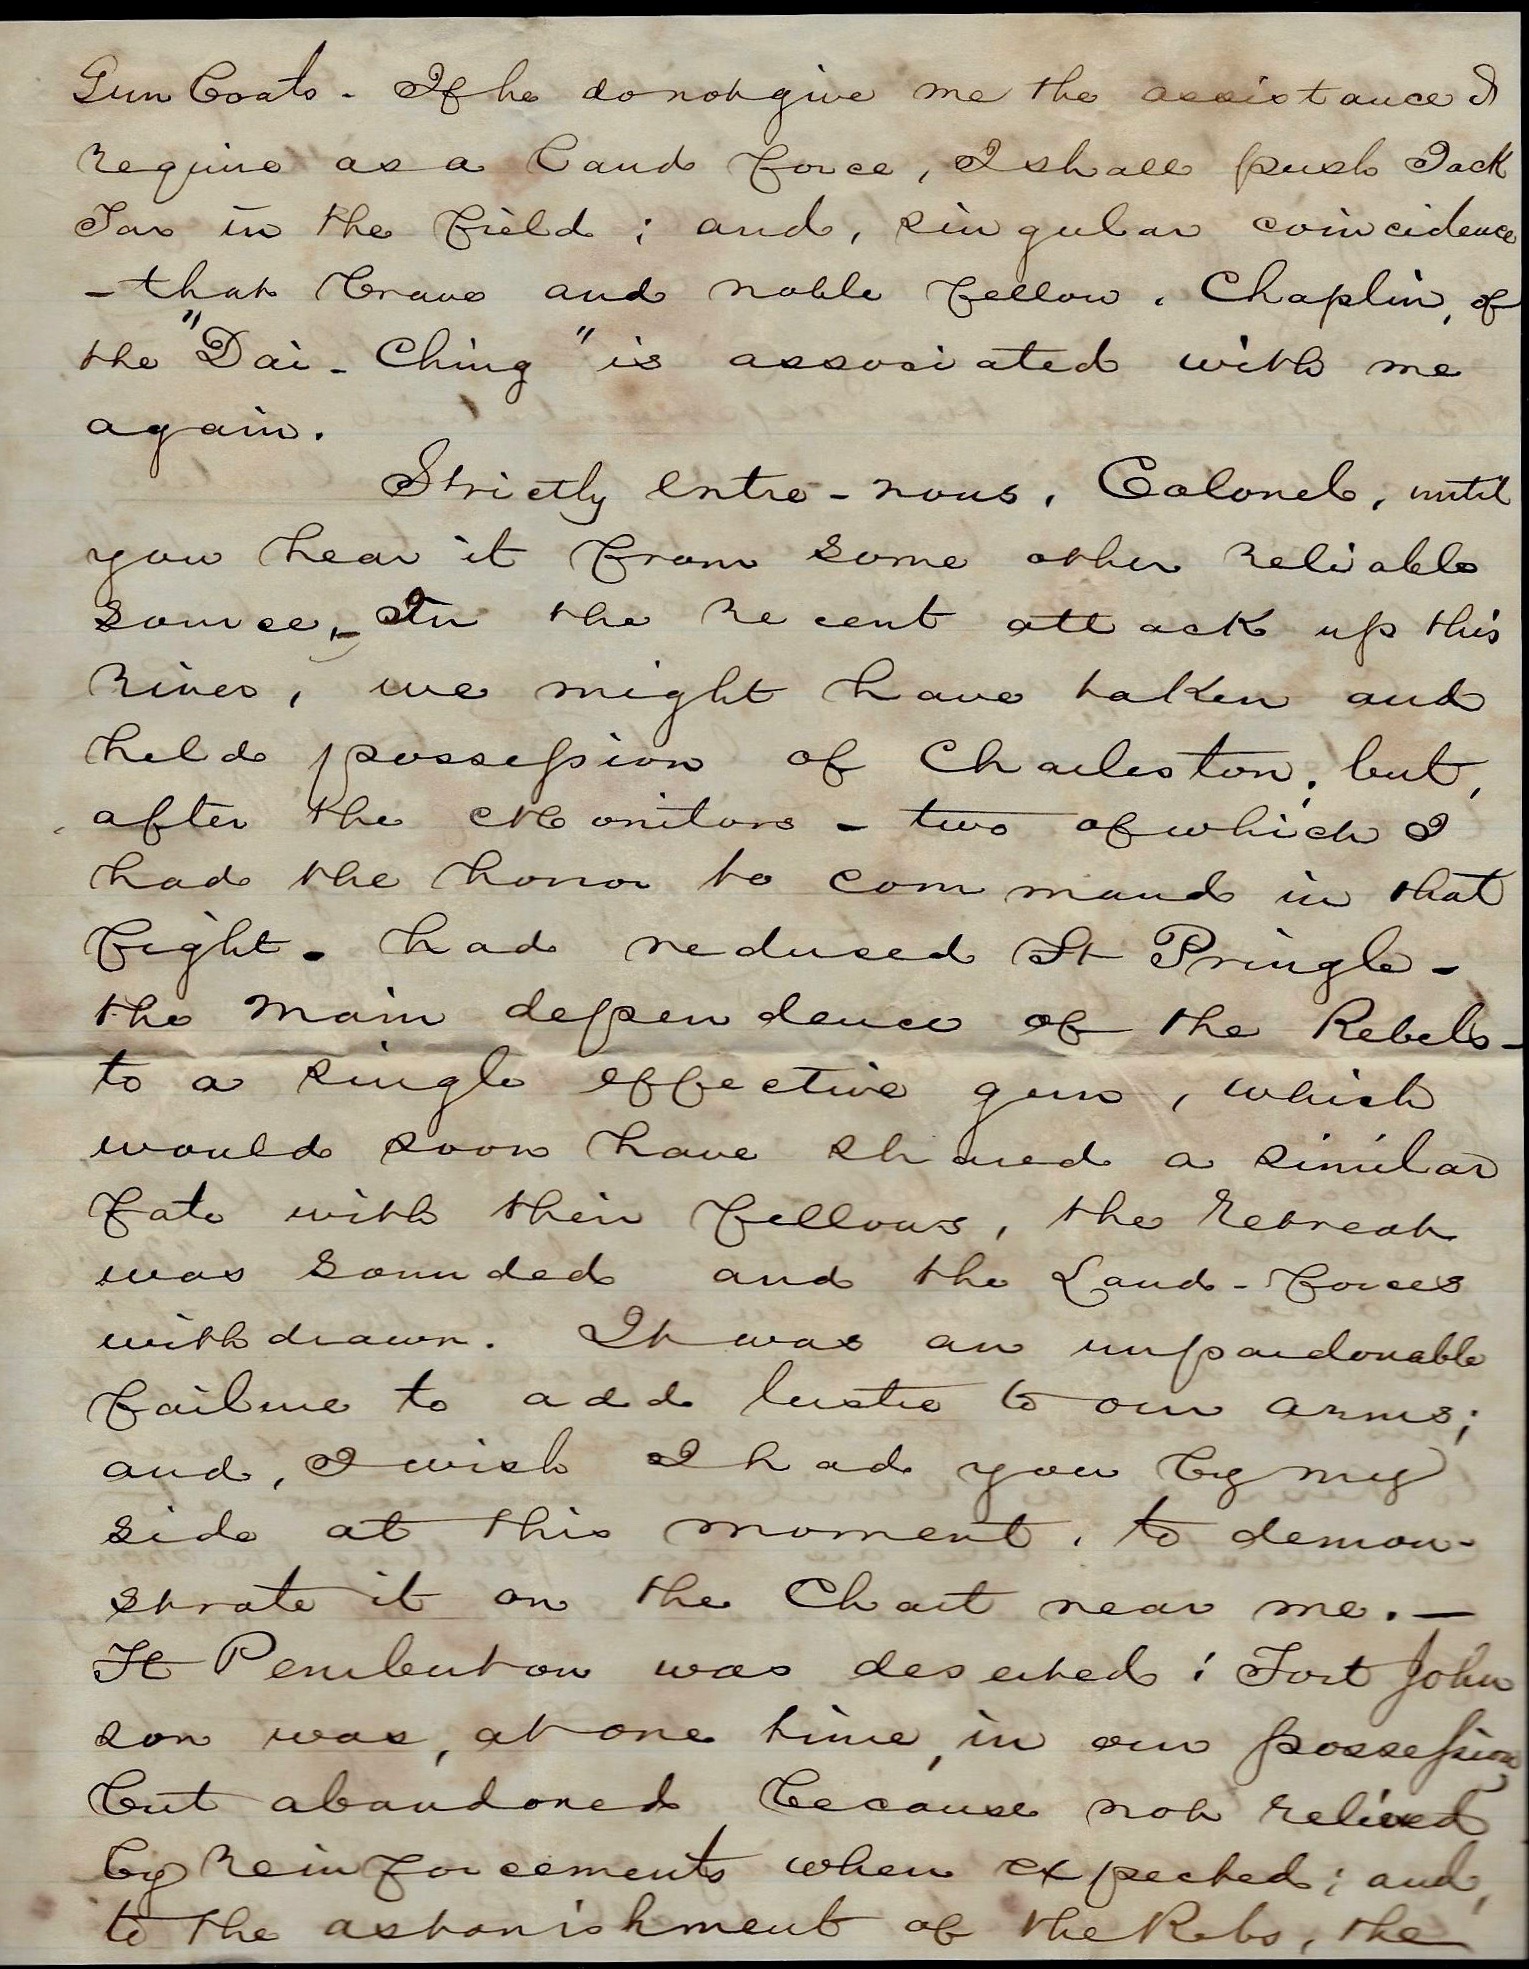 Gun boats - If he do not give me the assistance I
require as a land force, I shall push Jack
Tar in the field; and, singular coincidence
- that brave and noble fellow, Chaplin, of
the "Dai-Ching" is associated with me
again.
Strictly entre-nous, Colonel, until
you hear it from some other reliable
source, - In the recent attack up this
River, we might have taken and
held possession of Charleston, but,
after the Monitors - two of which I
had the honor to command in that
fight - had reduced Ft Pringle -
the main dependence of the Rebels -
to a single effective gun, which
would soon have shared a similar
fate with their fellows, the retreat
was sounded and the Land-forces
withdrawn. It was an unpardonable
failure to add lustre to our arms;
and, I wish I had you by my
side at this moment, to demon-
strate it on the Chart near me. -
Ft Pemberton was deserted; Fort John
son was, at one time, in our possession,
but abandoned because not relieved
by reinforcements when expected; and,
to the astonishment of the Rebs, the